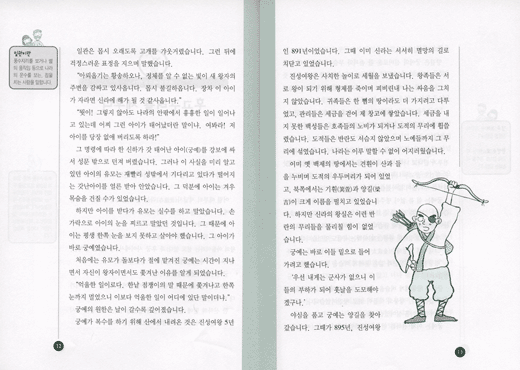 일관이란
풍수지리를 보거나 별
의 움직임 등으로 나라
의 운수를 보는, 점을
치는 사람을 말합니다.
일관은 몹시 오래도록 고개를 갸웃거렸습니다. 그런 뒤에
걱정스러운 표정을 지으며 말했습니다.
"아뢰옵기는 황송하오나, 정체를 알 수 없는 빛이 새 왕자의
주변을 감싸고 있사옵니다. 몹시 불길하옵니다. 장차 이 아이
가 자라면 신라에 해가 될 것 같사옵니다."
"뭣이! 그렇지 않아도 나라의 안팎에서 흉흉한 일이 일어나
고 있는데 어찌 그런 아이가 태어났더란 말이냐. 여봐라! 저
아이를 당장 없애 버리도록 하라!"
그 명령에 따라 한 신하가 갓 태어난 아이(궁예)를 강보에 싸
서 성문 밖으로 던져 버렸습니다. 그러나 이 사실을 미리 알고
있던 아이의 유모는 재빨리 성벽에서 기다리고 있다가 떨어지
는 갓난아이를 얼른 받아 안았습니다. 그 덕분에 아이는 겨우
목숨을 건질 수가 있었습니다.
하지만 아이를 받다가 유모는 실수를 하고 말았습니다. 손
가락으로 아이의 눈을 찌르고 말았던 것입니다. 그 때문에 아
이는 평생 한쪽 눈을 보지 못하고 살아야 했습니다. 그 아이가
바로 궁예였습니다.
처음에는 유모가 돌보다가 절에 맡겨진 궁예는 시간이 지나
면서 자신이 왕자이면서도 쫓겨난 이유를 알게 되었습니다.
"억울한 일이로다. 한낱 점쟁이의 말 때문에 쫓겨나고 한쪽
눈까지 멀었으니 이보다 억울한 일이 어디에 있단 말이더냐."
궁예의 원한은 날이 갈수록 깊어졌습니다.
궁예가 복수를 하기 위해 산에서 내려온 것은 진성여왕 5년
12
인 891년이었습니다. 그때 이미 신라는 서서히 멸망의 길로
치닫고 있었습니다.
진성여왕은 사치한 놀이로 세월을 보냈습니다. 왕족들은 서
로 왕이 되기 위해 형제를 죽이며 피비린내 나는 싸움을 그치
지 않았습니다. 귀족들은 한 뼘의 땅이라도 더 가지려고 다투
었고, 관리들은 세금을 걷어 제 창고에 쌓았습니다. 세금을 내
지 못한 백성들은 호족들의 노비가 되거나 도적의 무리에 휩쓸
렸습니다. 도적들은 반란도 서슴지 않았으며 노예들까지 그 무
리에 섞였습니다. 나라는 이루 말할 수 없이 어지러웠습니다.
이미 옛 백제의 땅에서는 견훤이 산과 들
을 누비며 도적의 우두머리가 되어 있었
고, 북쪽에서는 기훤(箕萱)과 양길(梁
吉)이 크게 이름을 떨치고 있었습니
다. 하지만 신라의 왕실은 이런 반
란의 무리들을 물리칠 힘이 없었
습니다.
궁예는 바로 이들 밑으로 들어
가려고 했습니다.
'우선 내게는 군사가 없으니 이
들의 부하가 되어 훗날을 도모해야
겠구나.'
야심을 품고 궁예는 양길을 찾아
갔습니다. 그때가 895년, 진성여왕
13